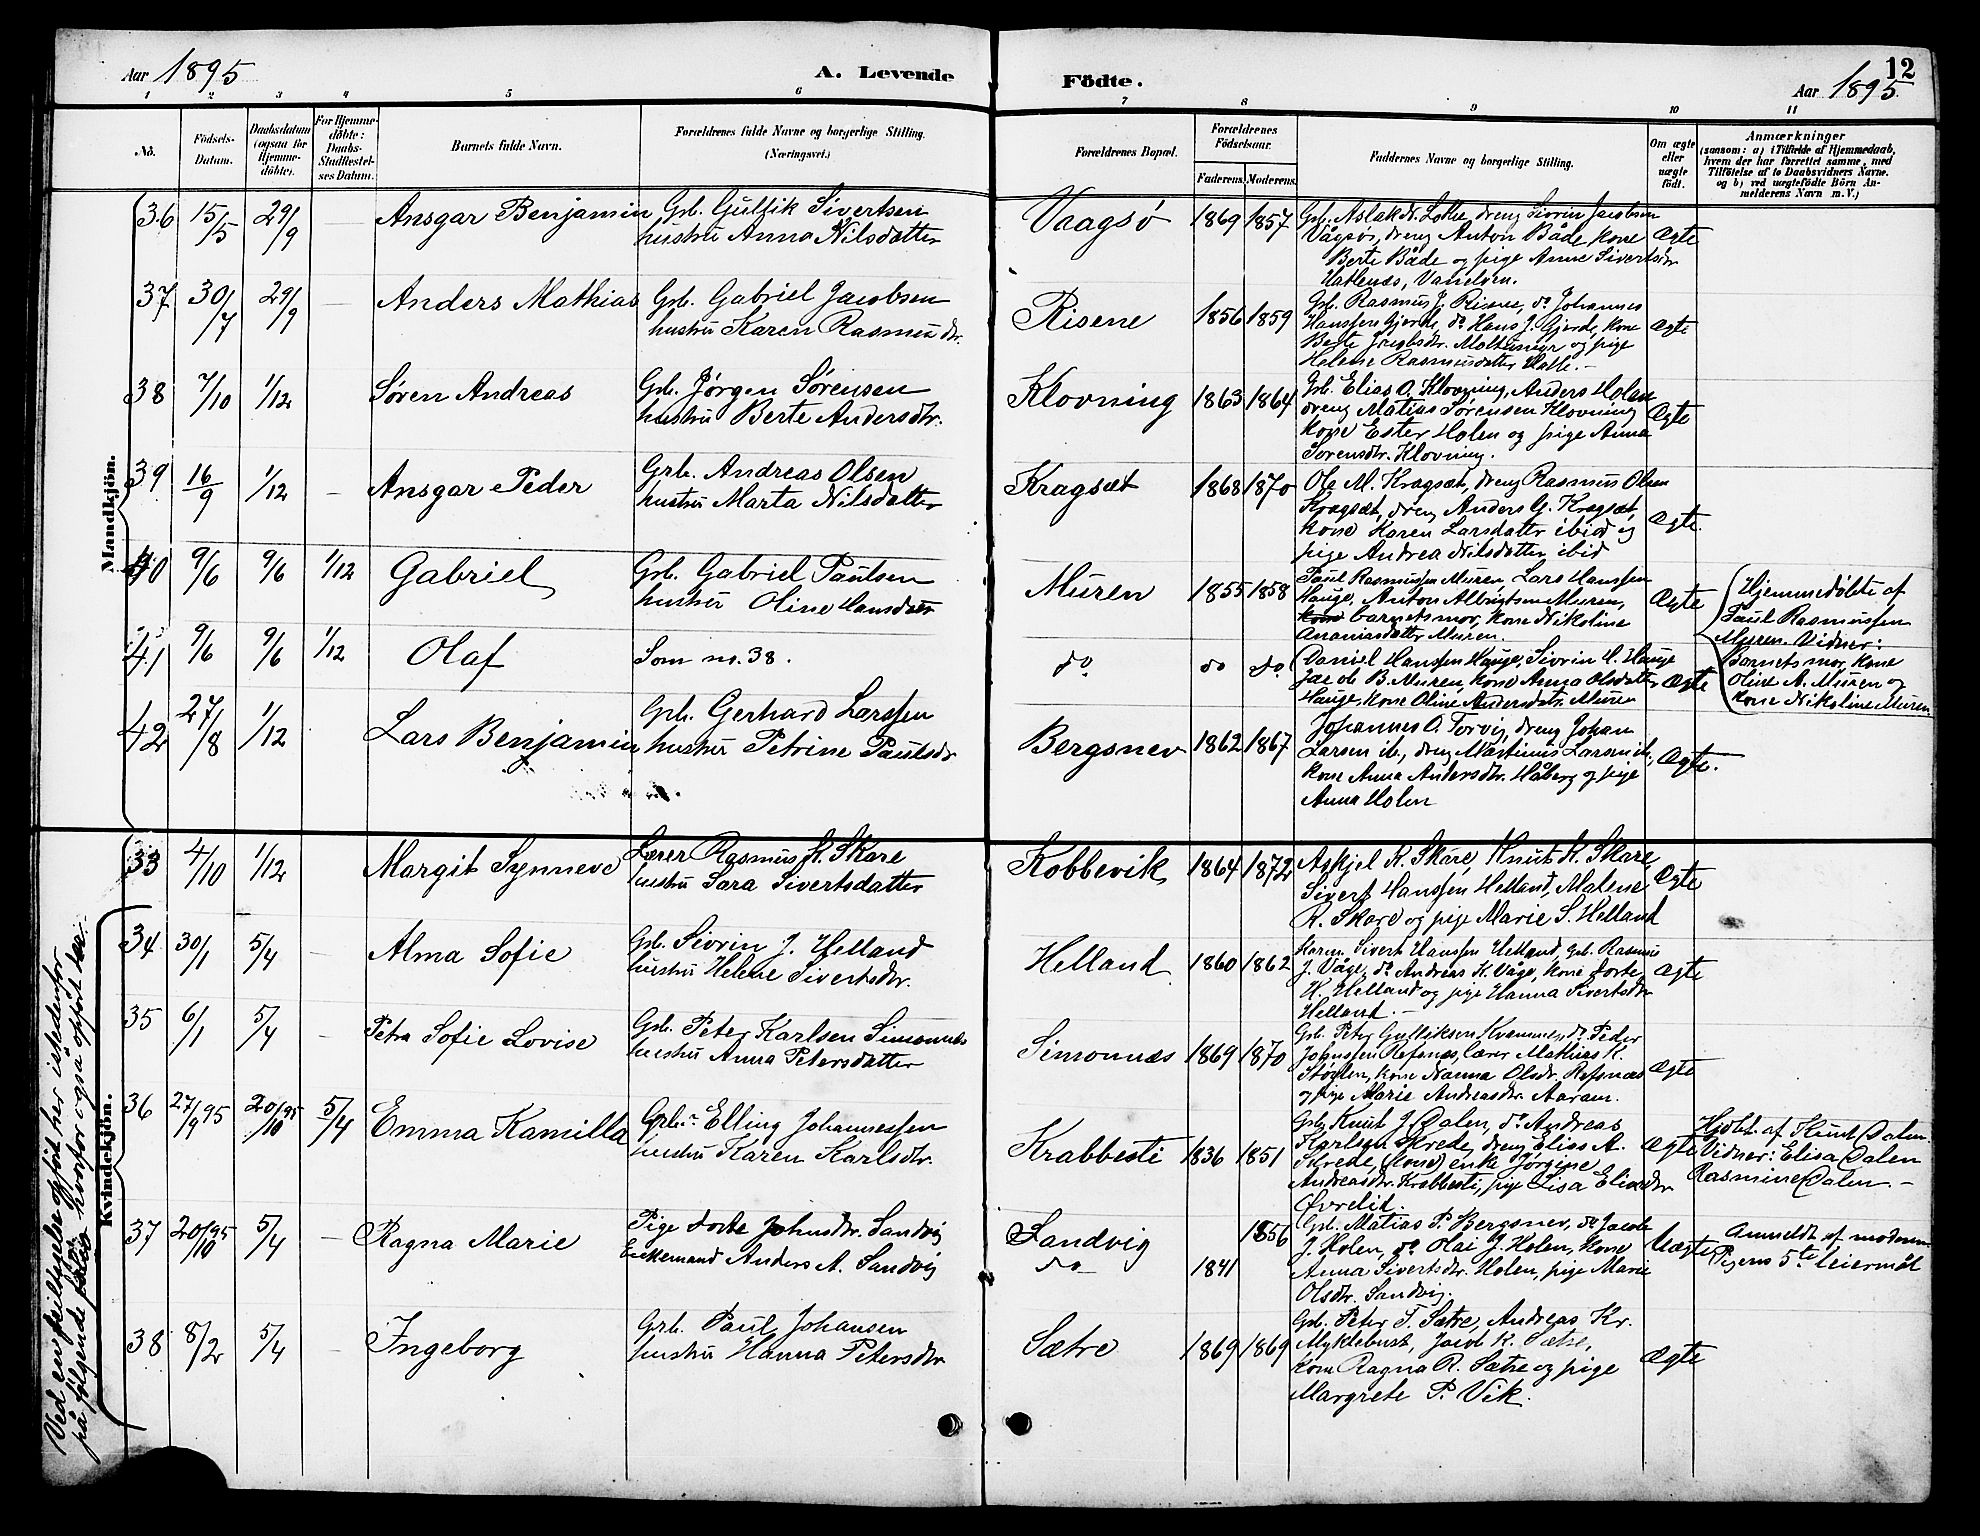 Aar 1895
A. Levende
Födte.
Aar 1895
12
1 2 3 4 5 6 7 8 9 10 11
No.
Födsels-
Datum.
Daabsdatum
(ogsaa för
Hjemme-
döbte).
For Hjemme-
döbte:
Daabs-
Stadfæstel-
ses Datum.
Barnets fulde Navn.
Forældrenes fulde Navne og borgerlige Stilling.
(Næringsvei.)
Forældrenes Bopæl.
Forældrenes
Födselsaar.
Faderens. Moderens.
Faddernes Navne og borgerlige Stilling.
Om ægte
eller
uægte
födt.
Anmærkninger
(saasom: a) i Tilfælde af Hjemmedaab,
hvem der har forrettet samme, med
Tilföielse af to Daabsvidners Navne.
og b) ved uægtefödte Börn An-
melderens Navn m. V.)
Mandkjön.
36 15/5 29/9 — Ansgar Benjamin
Grb. Gullik Sivertsen
hustru Anna Nilsdatter
Vaagsø 1869 1857
Grb. Aslak N. Lothe, dreng Sivrin Jacobsen
Vågsø, dreng Anton Både, kone
Berte Både og pige Anne Sivertsdtr
Vatlenæs, Vanelven.
Ægte
37 30/7 29/9 — Anders Mathias
Grb. Gabriel Jacobsen
hustru Karen Rasmusdtr.
Risene 1856 1859
Grb. Rasmus J. Risene, do Johannes
Hanssen Gjerde, do Hans J. Gjerde, kone
Berte Jacobsdtr. Moltumyr og pige
Helene Rasmusdatter Hatle. —
Ægte
38 7/10 1/12 Søren Andreas
Grb. Jørgen Sørensen
hustru Berte Andersdtr.
Klovning 1863 1864
Grb. Elias O. Klovning, Anders Holen
dreng Matias Sørensen Klovning
kone Ester Holen og pige Anna
Sørensdtr. Klovning.
Ægte
39 16/9 1/12 — Ansgar Peder
Grb. Andreas Olsen
hustru Marta Nilsdatter
Kragsæt 1868 1870
Ole M. Kragsæt, dreng Rasmus Olsen
Kragsæt, dreng Anders G. Kragsæt,
kone Karen Larsdatter ibid og
pige Andrea Nilsdatter ibid
Ægte.
40 9/6 9/6 1/12 Gabriel
Grb. Gabriel Paulsen
hustru Oline Hansdatter
Muren 1855 1858
Paul Rasmussen Muren, Lars Hanssen
Hauge, Anton Albrigtsen Muren,
kone barnets mor, kone Nikoline
Ananiasdatter Muren.
Ægte
Hjemmedøbte af
Paul Rasmussen
Muren. Vidner:
Barnets mor, kone
Oline A. Muren og
kone Nikoline Muren.
41 9/6 9/6 1/12 Olaf
Som no. 38.
do do do
Daniel Hanssen Hauge, Sivrin H. Hauge
Jacob B. Muren, kone Anna Olsdatter
Hauge, kone Oline Andersdatr. Muren
Ægte
42 27/8 1/12 Lars Benjamin
Grb. Gerhard Larssen
hustru Petrine Paulsdr
Bergsnev 1862 1867
Johannes O. Torvig, dreng Johan
Larsen ib., dreng Martinus Larsen ib.,
kone Anna Andersdtr. Håberg og pige
Anna Holen
Ægte.
Kvindekjön.
33 4/10 1/12 Margit Synneve
Lærer Rasmus K. Skare
hustru Sara Sivertsdatter
Kobbevik 1864 1872
Askjel K. Skare, Knut K. Skare,
Sivert Hanssen Helland, Malene
R. Skare og pige Marie S. Helland
Ægte
34 30/1 5/4 — Alma Sofie
Grb. Sivrin J. Helland
hustru Helene Sivertsdtr.
Helland 1860 1862
Sivert Hanssen Helland, Grb. Rasmus
J. Våge, do Andreas H. Våge, kone Dorte
H. Helland og pige Hanna Sivertsdtr
Helland. —
Ægte
35 6/1 5/4 — Petra Sofie Lovise
Grb. Peter Karlsen Simonnæs
hustru Anna Petersdatter
Simonnæs 1869 1870
Grb. Peter Gulliksen Kvamme, do Peder
Johnssen Refsnæs, lærer Mathias K.
Støylen, kone Nanna Olsdr. Refsnæs
og pige Marie Andreasdtr Aaram.
Ægte
36 27/9 95 20/10 95 5/4 Emma Kamilla
Grb. Elling Johannessen
hustru Karen Karlsdtr.
Krabbesti 1836 1851
Grb. Knut J. Dalen, do Andreas
Karlsen Skrede, dreng Elias A.
Skrede, (kone) enke Jørgine
Andreasdtr. Krabbesti, pige Lisa Eliasdtr
Øvrelid.
Ægte
Hjdbt. af Knut Dalen.
Vidner: Elisa Dalen
Rasmine Dalen. —
37 20/10 95 5/4 — Ragna Marie
Pige Dorte Johnsdtr. Sandvig
Enkemand Anders A. Sandvig
Sandvig 1856
do 1841
Grb. Matias P. Bergsnev, do Jacob
J. Holen, do Olai J. Holen, kone
Anna Sivertsdtr. Holen, pige Marie
Olsdtr. Sandvig.
Uægte
Anmeldt af moderen.
Pigens 5te leiermål
38 8/2 5/4 — Ingeborg
Grb. Paul Johansen
hustru Hanna Petersdtr
Sætre 1869 1869
Grb. Peter T. Sætre, Andreas Kr.
Myklebust, Jacob K. Sætre,
kone Ragna R. Sætre og pige
Margrete P. Vik.
Ægte
Ved en feiltagelse opført her istedenfor
på følgende side, hvorfor også opført der.